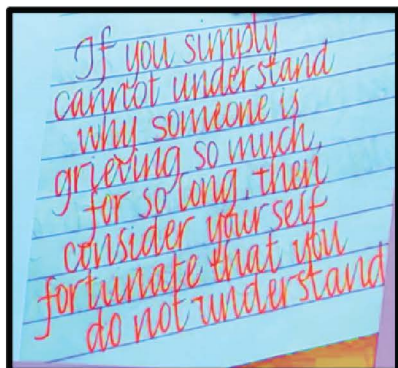 If you simply
cannot understand
why someone is
grieving so much,
for so long, then
consider yourself
fortunate that you
do not understand